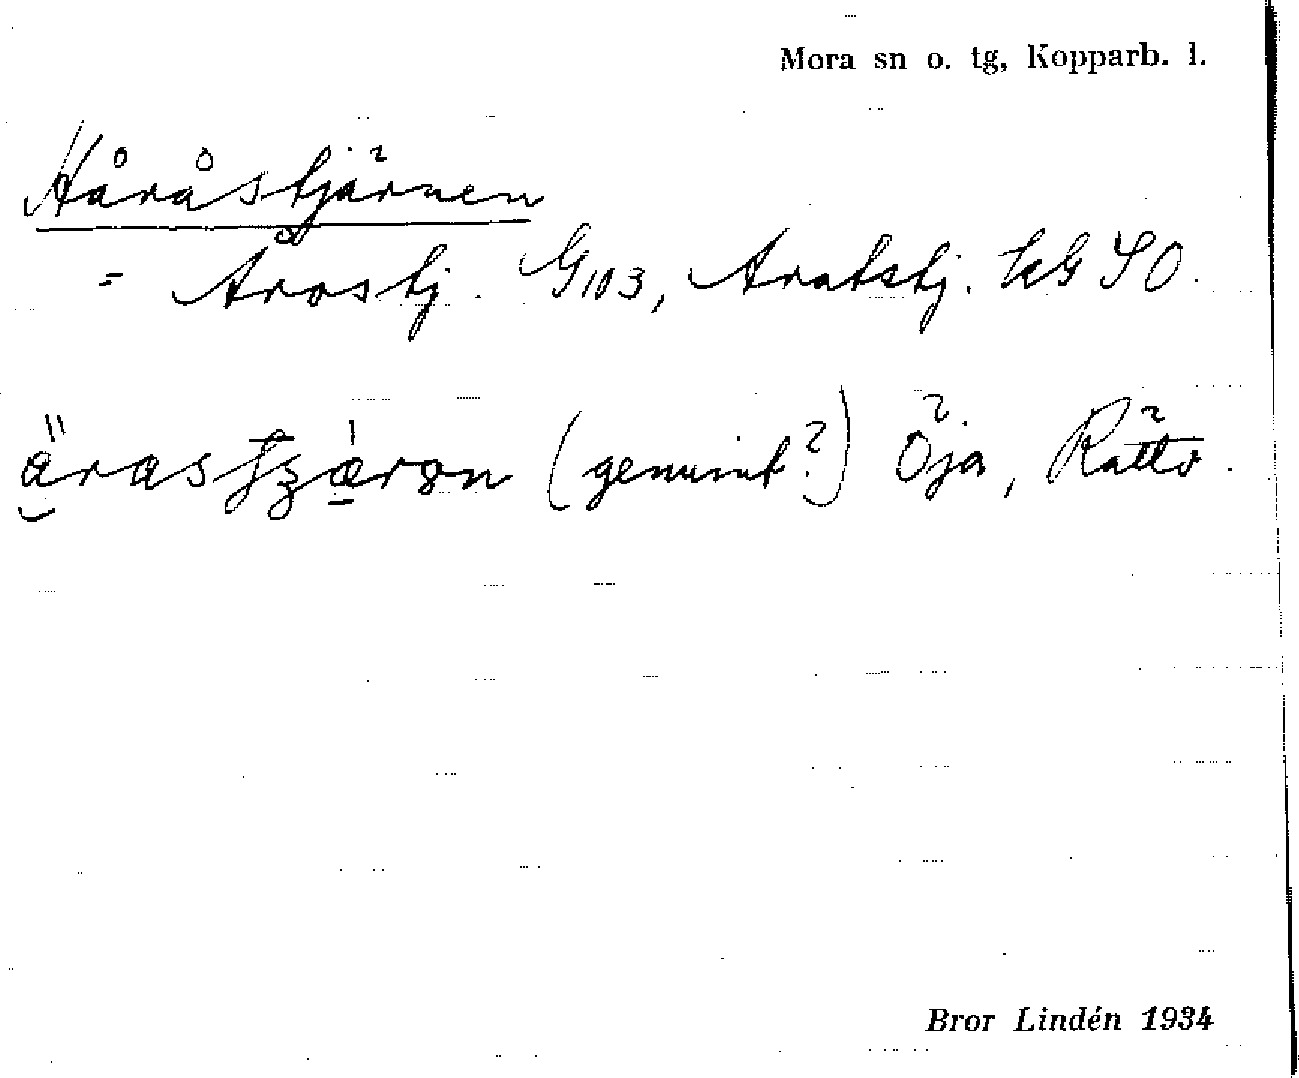 Mora sn o. tg, Kopparb. l.
Håråstjärnen
= Årostj. G103, Aratstj. kG SO.
ärastjärən (genuint?) Öja, Rättv.
Bror Lindén 1934